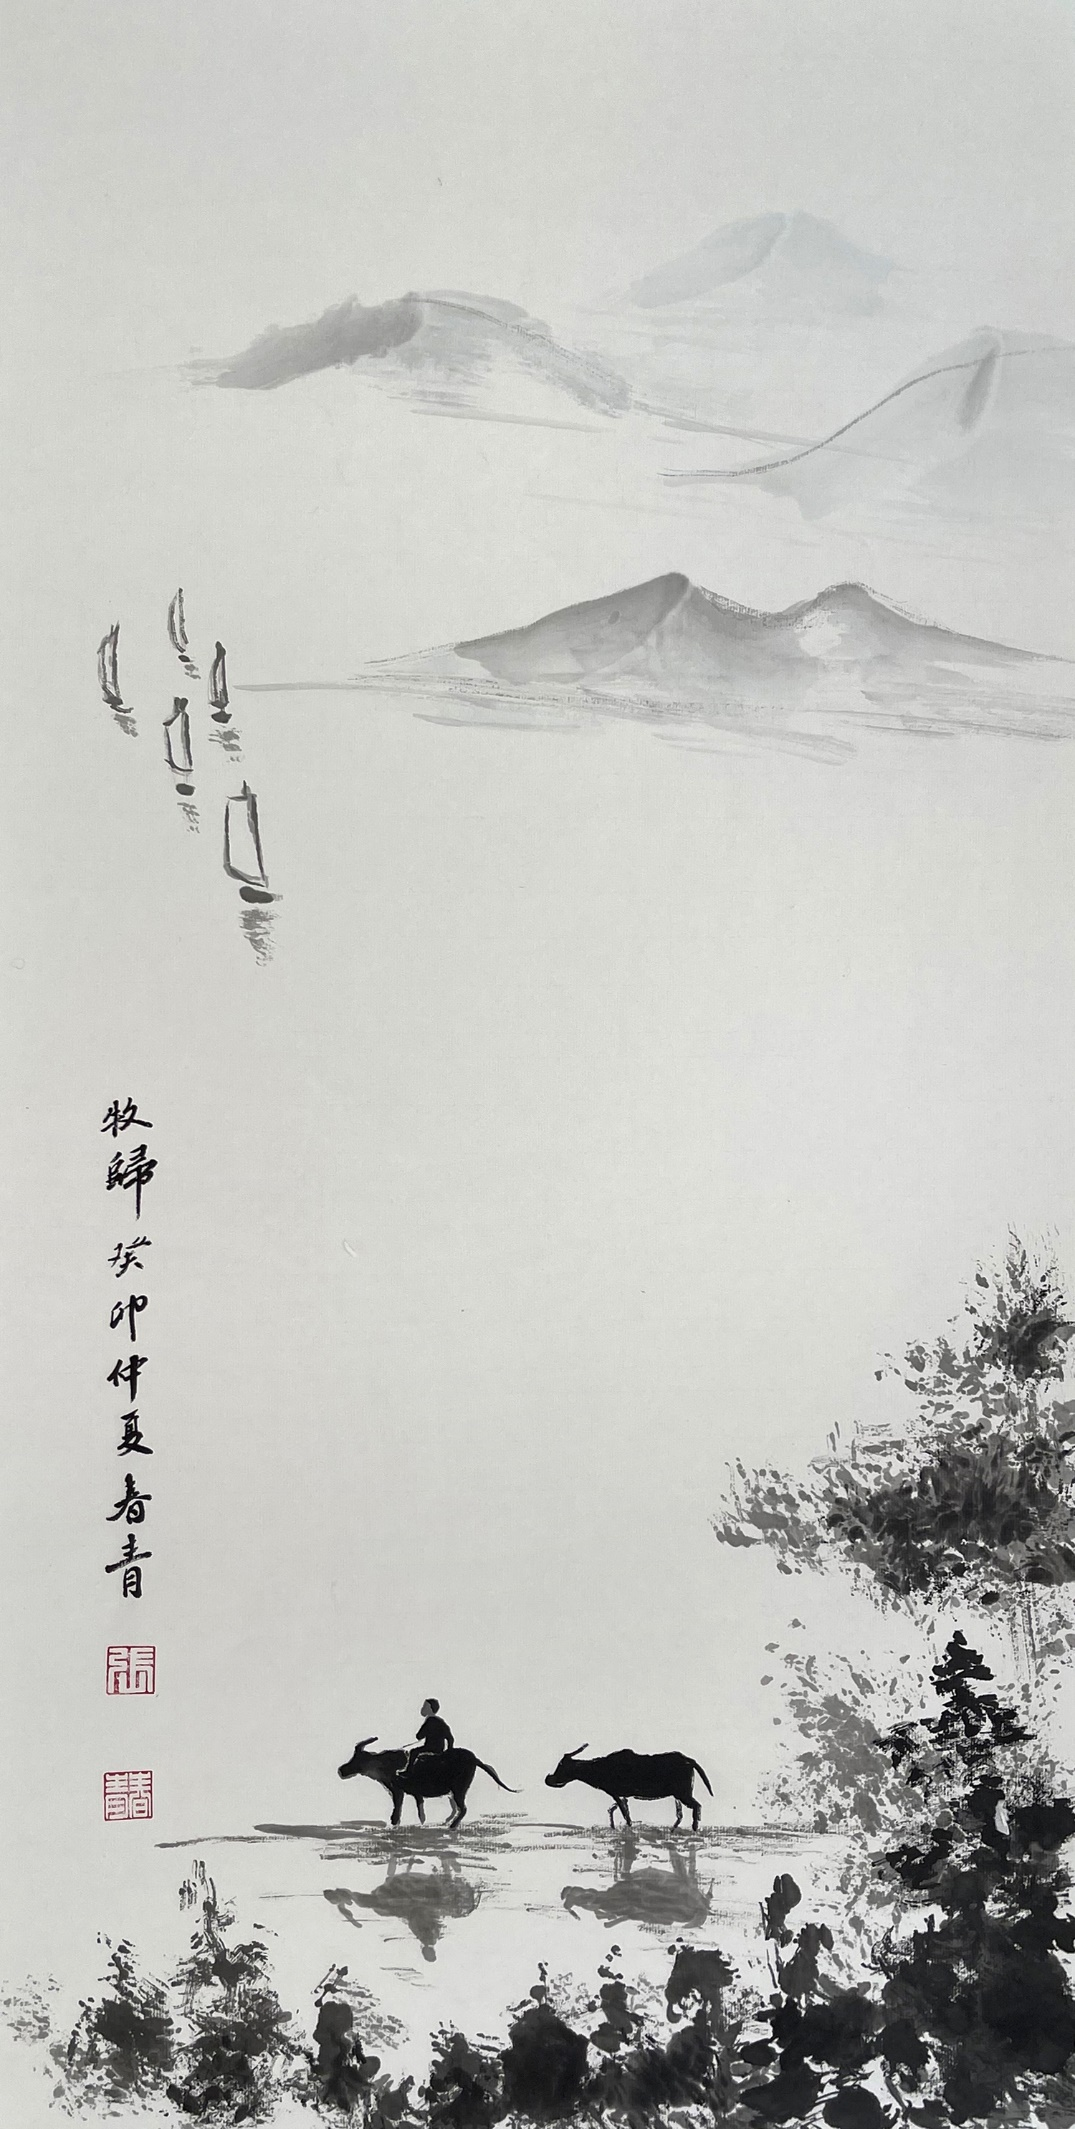 牧歸 癸卯仲夏春青
張
春青